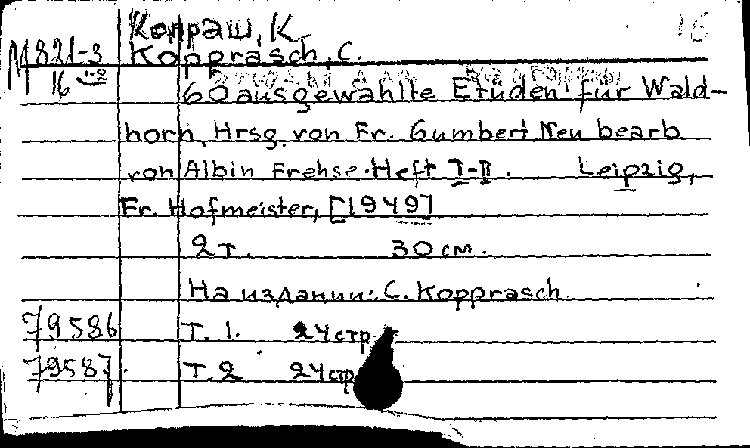 Коппраш, К. 16
М 821-3 Kopprasch, C.
16 1-2
60 ausgewählte Etüden für Wald-
horn. Hrsg. von Fr. Gumbert. Neu bearb.
von Albin Frehse. Heft I-II. Leipzig,
Fr. Hofmeister, [1949]
2 т. 30 см.
На издании: C. Kopprasch.
79586 Т. 1. 24 стр.
79587. Т. 2 24 стр